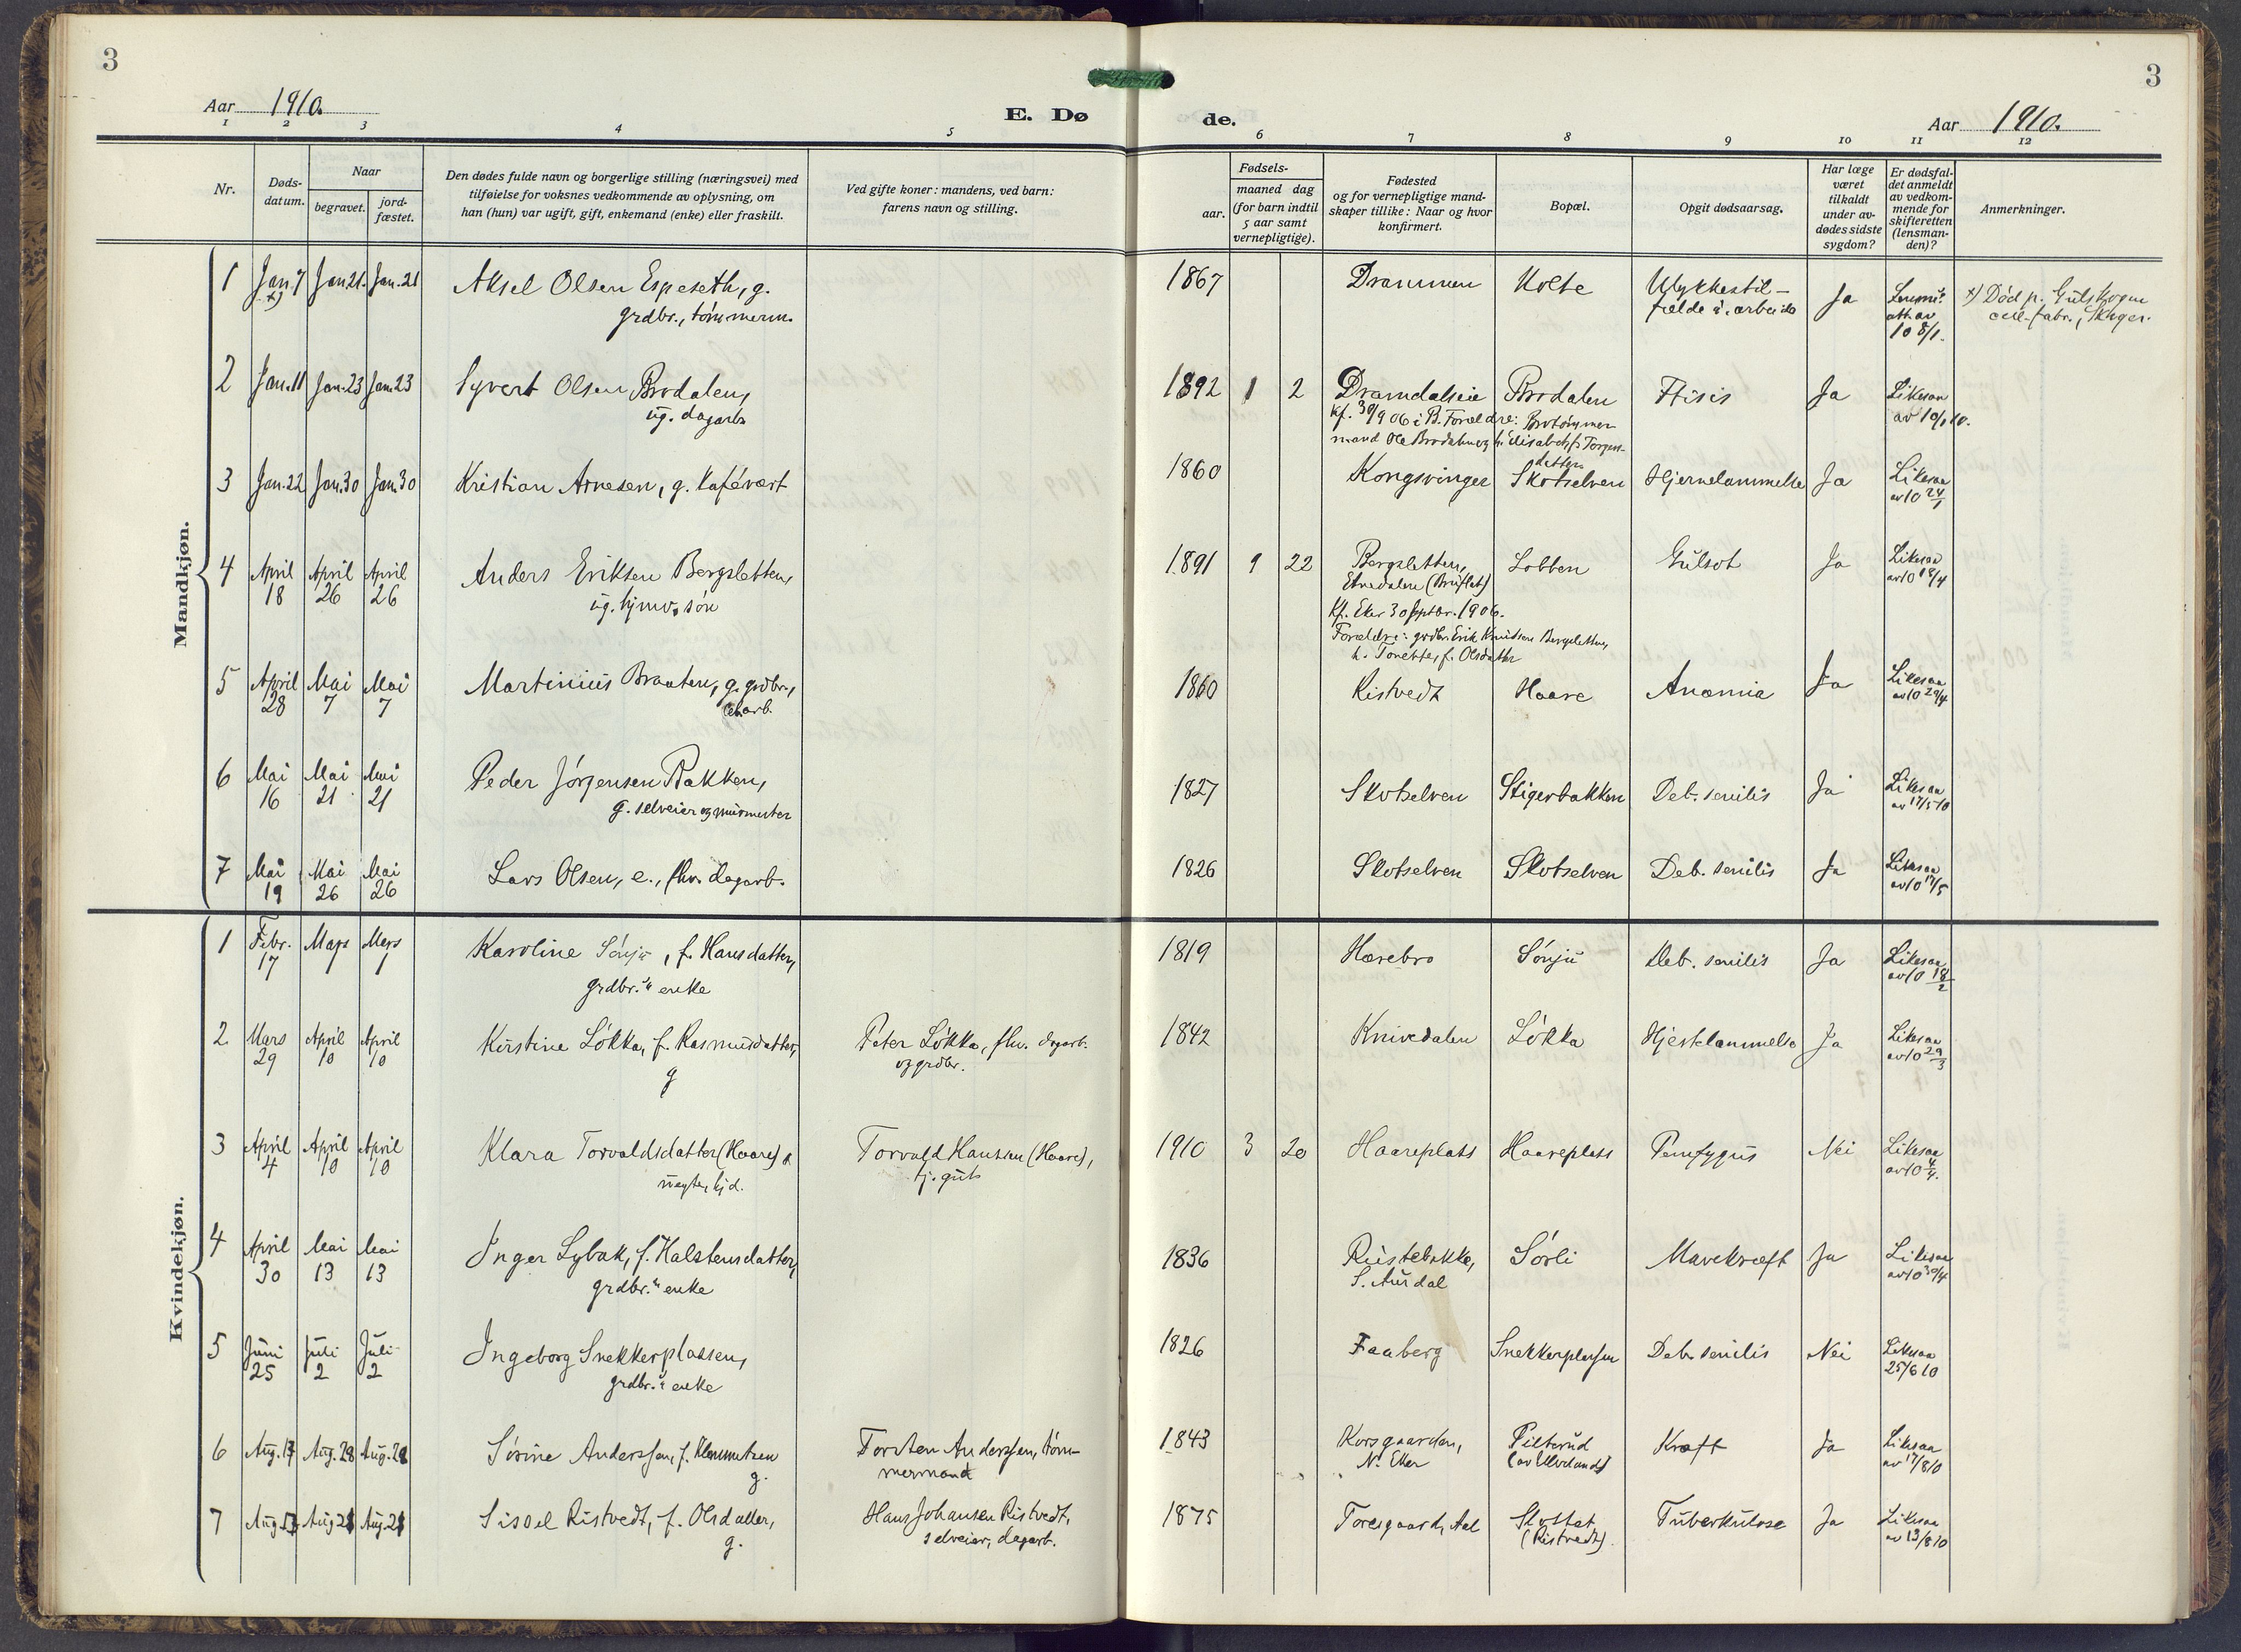 3
3
Aar 1910.
E. Dø
de.
Aar 1910.
1 2 3 4 5 6 7 8 9 10 11 12
Nr.
Døds-
datum.
Naar
begravet.
jord-
fæstet.
Den dødes fulde navn og borgerlige stilling (næringsvei) med
tilføielse for voksnes vedkommende av oplysning, om
han (hun) var ugift, gift, enkemand (enke) eller fraskilt.
Ved gifte koner: mandens, ved barn:
farens navn og stilling.
Fødsels-
aar.
maaned dag
(for barn indtil
5 aar samt
vernepligtige).
Fødested
og for vernepligtige mand-
skaper tillike: Naar og hvor
konfirmert.
Bopæl.
Opgit dødsaarsag.
Har læge
været
tilkaldt
under av-
dødes sidste
sygdom?
Er dødsfal-
det anmeldt
av vedkom-
mende for
skifteretten
(lensman-
den)?
Anmerkninger.
Mandkjøn.
1 Jan. 7 Jan 21. Jan. 21 Aksel Olsen Espeseth, g. 1867 Drammen Holte Ulykkestil-
x) grdbr., tømmerm. fælde i arbeide Ja
att av
10 8/1.
x) Død p. Gulskogen
cell.fabr., Skoger.
2 Jan. 11 Jan. 23 Jan. 23 Syvert Olsen Brodalen, 1892 1 2 Dramdalseie Brodalen Ftisis Ja Likesaa
ug. dagarb. av 10/1 10.
kf. 30/9 06 i B. Forældre: Brotømmer-
mand Ole Brodalen og h. Elisabeth f. Torgers-
datter
3 Jan. 22 Jan. 30 Jan. 30 Kristian Arnesen, g. kafévært 1860 Kongsvinger Skotselven Hjernelammelse Ja Likesaa
av 10 24/1
4 April 18 April 26 April 26 Anders Eriksen Bergsletten, 1891 9 22 Bergsletten, Lobben Gulsot Ja Likesaa
ug. hjmv. søn Etnedalen (Bruflat) av 10 18/4
Kf. Eker 30 septbr. 1906.
Forældre: grdbr. Erik Knudsen Bergsletten,
h. Torette, f. Olsdatter
5 April 28 Mai 7 Mai 7 Martinius Braaten, g. grdbr., 1860 Ristvedt Haare Anæmia Ja Likesaa
cel.arb. av 10 29/4
6 Mai 16 Mai 21 Mai 21 Peder Jørgensen Bakken, 1827 Skotselven Stigerbakken Deb. senilis Ja Likesaa
g. selveier og murmester av 17/5 10
7 Mai 19 Mai 26 Mai 26 Lars Olsen, e., fhv. dagarb. 1826 Skotselven Skotselven Deb. senilis Ja Likesaa
av 10 19/5
Kvindekjøn.
1 Febr. 17 Mars 1 Mars 1 Karoline Sønju, f. Hansdatter, 1819 Hærebro Sønju Deb. senilis Ja Likesaa
grdbr.'s enke av 10 18/2
2 Mars 29 April 10 April 10 Kirstine Løkka, f. Rasmusdatter, Peter Løkka, fhv. dagarb. 1842 Knivedalen Løkka Hjertelammelse Ja Likesaa
g og grdbr. av 10 29/3
3 April 4 April 10 April 10 Klara Torvaldsdatter (Haare) Torvald Hansen (Haare), 1910 3 20 Haareplats Haareplats Pemfygus Nei Likesaa
uegte, hjd. tj.gut av 10 4/4.
4 April 30 Mai 13 Mai 13 Inger Lybak, f. Halstensdatter, 1836 Rustebakke, Sørli Mavekræft Ja Likesaa
grdbr.'s enke S. Aurdal av 10 30/4
5 Juni 25 Juli 2 Juli 2 Ingeborg Snekkerplassen, 1826 Faaberg Snekkerplassen Deb. senilis Nei Likesaa
grdbr.'s enke 25/6 10
6 Aug. 17 Aug. 28 Aug. 28 Sørine Anderssen, f. Klemmetsen Torsten Anderssen, tøm- 1843 Korsgaarden, Pilterud Kræft Ja Likesaa
g. mermand N. Eker av 17/8 10
7 Aug. 13 Aug 21 Aug. 21 Sissel Ristvedt, f. Olsdatter, Hans Johansen Ristvedt, 1875 Toresgaard, Aal Slottet Tuberkulose Ja Likesaa
g. selveier, dagarb. (Ristvedt). av 13/8 10